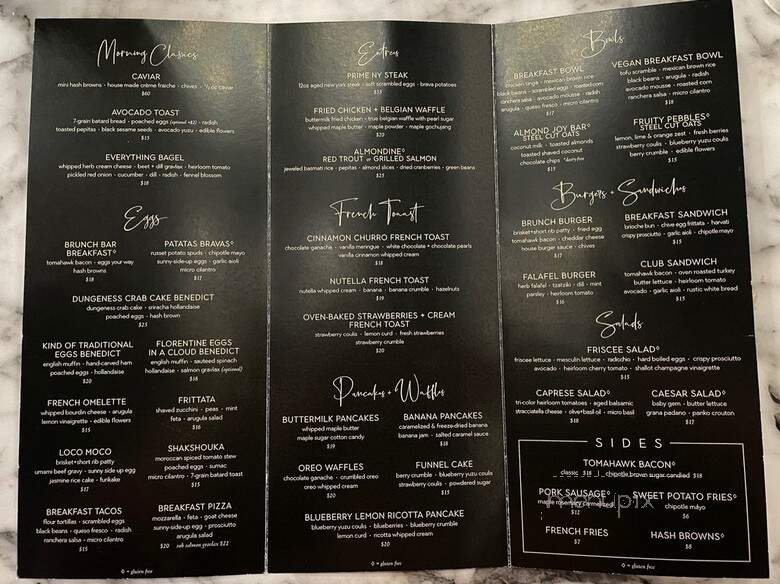 Morning Classics
CAVIAR
mini hash browns · house made crème fraiche · chives · ½ oz caviar
$60
AVOCADO TOAST
7-grain batard bread · poached eggs (optional +$2) · radish
toasted pepitas · black sesame seeds · avocado yuzu · edible flowers
$15
EVERYTHING BAGEL
whipped herb cream cheese · beet + dill gravlax · heirloom tomato
pickled red onion · cucumber · dill · radish · fennel blossom
$18
Eggs
BRUNCH BAR
BREAKFAST◊
tomahawk bacon · eggs your way
hash browns
$18
PATATAS BRAVAS◊
russet potato spuds · chipotle mayo
sunny-side-up eggs · garlic aioli
micro cilantro
$17
DUNGENESS CRAB CAKE BENEDICT
dungeness crab cake · sriracha hollandaise
poached eggs · hash brown
$25
KIND OF TRADITIONAL
EGGS BENEDICT
english muffin · hand-carved ham
poached eggs · hollandaise
$20
FLORENTINE EGGS
IN A CLOUD BENEDICT
english muffin · sauteed spinach
hollandaise · salmon gravlax (optional)
$16
FRENCH OMELETTE
whipped boursin cheese · arugula
lemon vinaigrette · edible flowers
$15
FRITTATA
shaved zucchini · peas · mint
feta · arugula salad
$16
LOCO MOCO
brisket+short rib patty
umami beef gravy · sunny side up egg
jasmine rice cake · furikake
$17
SHAKSHOUKA
moroccan spiced tomato stew
poached eggs · sumac
micro cilantro · 7-grain batard toast
$15
BREAKFAST TACOS
flour tortillas · scrambled eggs
black beans · queso fresco · radish
ranchera salsa · micro cilantro
$15
BREAKFAST PIZZA
mozzarella · feta · goat cheese
sunny-side-up egg · prosciutto
arugula salad
$20 sub salmon gravlax $22
◊ = gluten free
Entrées
PRIME NY STEAK
12oz aged new york steak · soft scrambled eggs · brava potatoes
$35
FRIED CHICKEN + BELGIAN WAFFLE
buttermilk fried chicken · true belgian waffle with pearl sugar
whipped maple butter · maple powder · maple gochujang
$20
ALMONDINE◊
RED TROUT or GRILLED SALMON
jaweled basmati rice · pepitas · almond slices · dried cranberries · green beans
$25
French Toast
CINNAMON CHURRO FRENCH TOAST
chocolate ganache · vanilla meringue · white chocolate + chocolate pearls
vanilla cinnamon whipped cream
$18
NUTELLA FRENCH TOAST
nutella whipped cream · banana · banana crumble · hazelnuts
$19
OVEN-BAKED STRAWBERRIES + CREAM
FRENCH TOAST
strawberry coulis · lemon curd · fresh strawberries
strawberry crumble
$20
Pancakes + Waffles
BUTTERMILK PANCAKES
whipped maple butter
maple sugar cotton candy
$19
BANANA PANCAKES
caramelized & freeze-dried banana
banana jam · salted caramel sauce
$18
OREO WAFFLES
chocolate ganache · crumbled oreo
oreo whipped cream
$20
FUNNEL CAKE
berry crumble · blueberry yuzu coulis
strawberry coulis · powdered sugar
$15
BLUEBERRY LEMON RICOTTA PANCAKE
blueberry yuzu coulis · blueberries · blueberry crumble
lemon curd · ricotta whipped cream
$20
◊ = gluten free
Bowls
BREAKFAST BOWL
chicken tinga · mexican brown rice
black beans · scrambled eggs · roasted corn
ranchera salsa · avocado mousse · radish
arugula · queso fresco · micro cilantro
$17
VEGAN BREAKFAST BOWL
tofu scramble · mexican brown rice
black beans · arugula · radish
avocado mousse · roasted corn
ranchera salsa · micro cilantro
$18
ALMOND JOY BAR◊
STEEL CUT OATS
coconut milk · toasted almonds
toasted shaved coconut
chocolate chips *dairy free
$15
FRUITY PEBBLES◊
STEEL CUT OATS
lemon, lime & orange zest · fresh berries
strawberry coulis · blueberry yuzu coulis
berry crumble · edible flowers
$15
Burgers + Sandwiches
BRUNCH BURGER
brisket+short rib patty · fried egg
tomahawk bacon · cheddar cheese
house burger sauce · chives
$17
BREAKFAST SANDWICH
brioche bun · chive egg frittata · harvati
crispy prosciutto · garlic aioli · chipotle mayo
$15
FALAFEL BURGER
herb falafel · tzatziki · dill · mint
parsley · heirloom tomato
$16
CLUB SANDWICH
tomahawk bacon · oven roasted turkey
butter lettuce · heirloom tomato
avocado · garlic aioli · rustic white bread
$15
Salads
FRISCEE SALAD◊
friscee lettuce · mesculin lettuce · radicchio · hard boiled eggs · crispy prosciutto
avocado · heirloom cherry tomato · shallot champagne vinaigrette
$15
CAPRESE SALAD◊
tri-color heirloom tomatoes · aged balsamic
stracciatella cheese · olive+basil oil · micro basil
$18
CAESAR SALAD◊
baby gem · butter lettuce
grana padano · panko crouton
$17
SIDES
TOMAHAWK BACON◊
classic $18 · chipotle brown sugar candied $18
PORK SAUSAGE◊
maple
$12
SWEET POTATO FRIES◊
chipotle mayo
$6
FRENCH FRIES
$7
HASH BROWNS◊
$8
◊ = gluten free
menupix